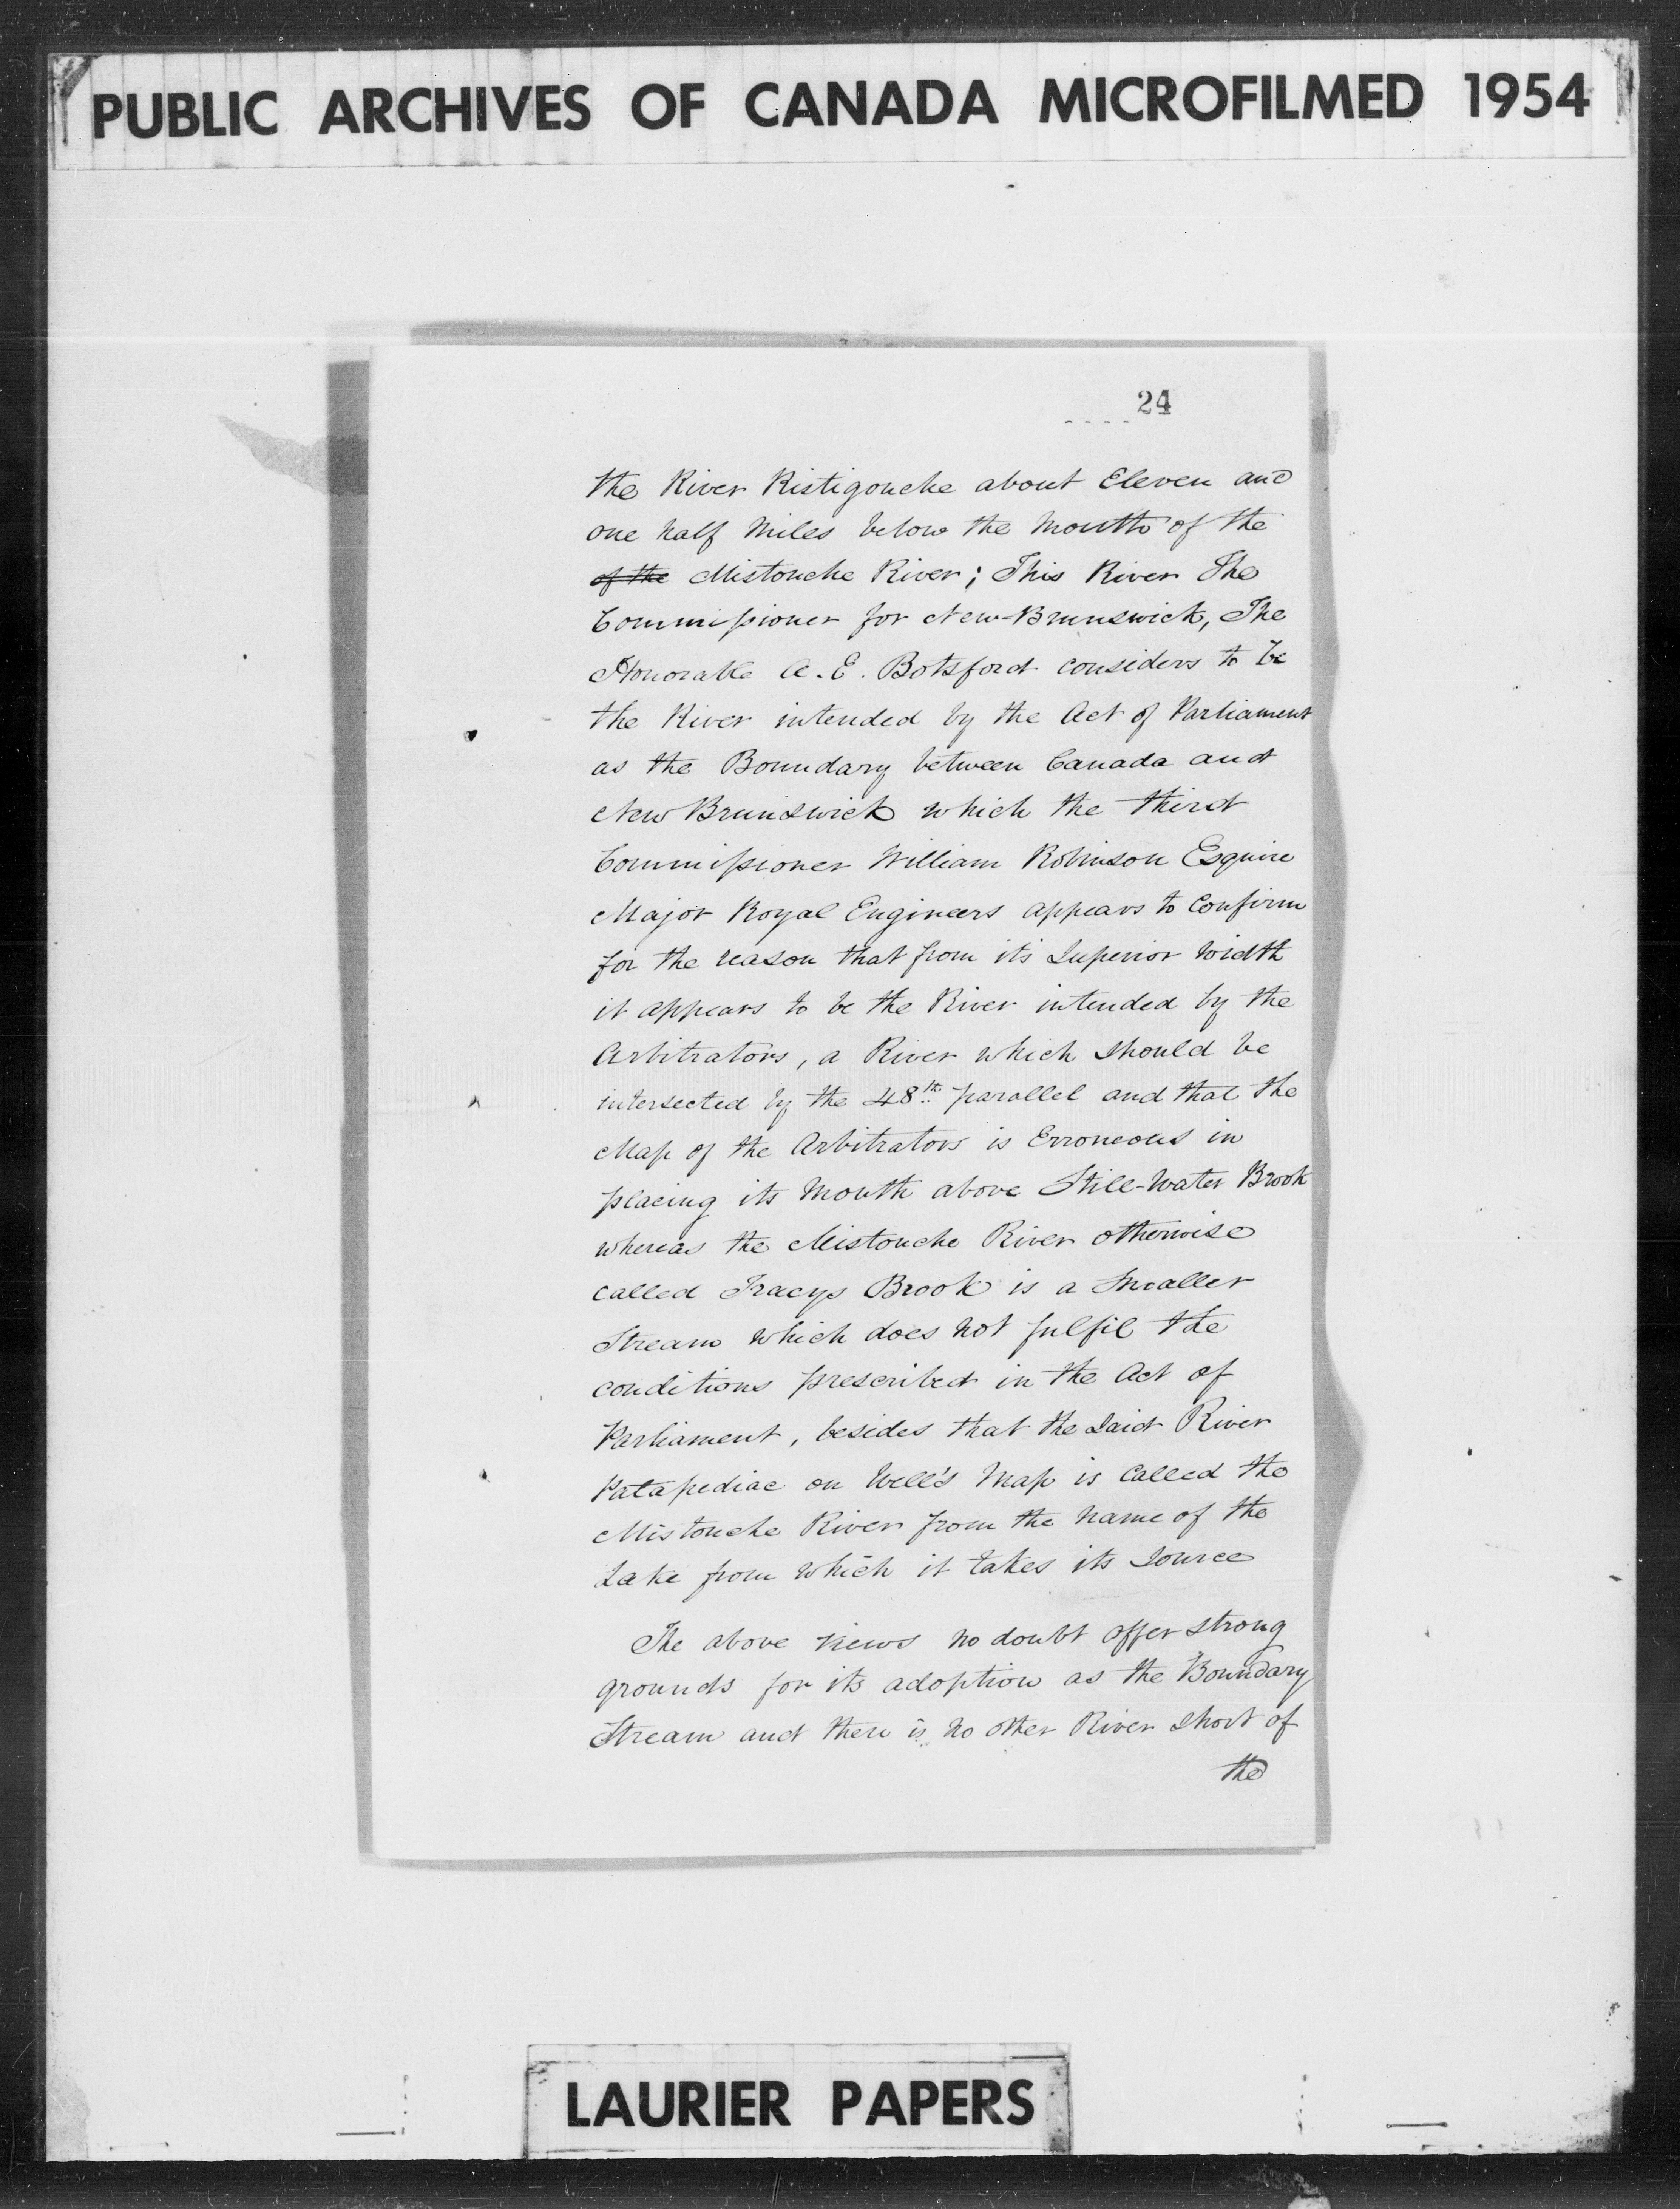 PUBLIC ARCHIVES OF CANADA MICROFILMED 1954
24
the River Ristigouche about Eleven and
one half Miles below the Mouth of the
of the Mistouche River; This River The
Commissioner for New-Brunswick, The
Honorable A. E. Botsford considers to be
the River intended by the Act of Parliament
as the Boundary between Canada and
New Brunswick which the third
Commissioner William Robinson Esquire
Major Royal Engineers appears to Confirm
for the reason that from its Superior Width
it appears to be the River intended by the
Arbitrators, a River which should be
intersected by the 48th parallel and that the
Map of the Arbitrators is Erroneous in
placing its Mouth above Still-Water Brook
whereas the Mistouche River otherwise
called Tracys Brook is a Smaller
Stream which does not fulfil the
conditions prescribed in the Act of
Parliament, besides that the said River
Patapediac on Well's Map is called the
Mistouche River from the name of the
Lake from which it takes its source
The above views no doubt offer strong
grounds for its adoption as the Boundary
Stream and there is no other River short of
the
LAURIER PAPERS